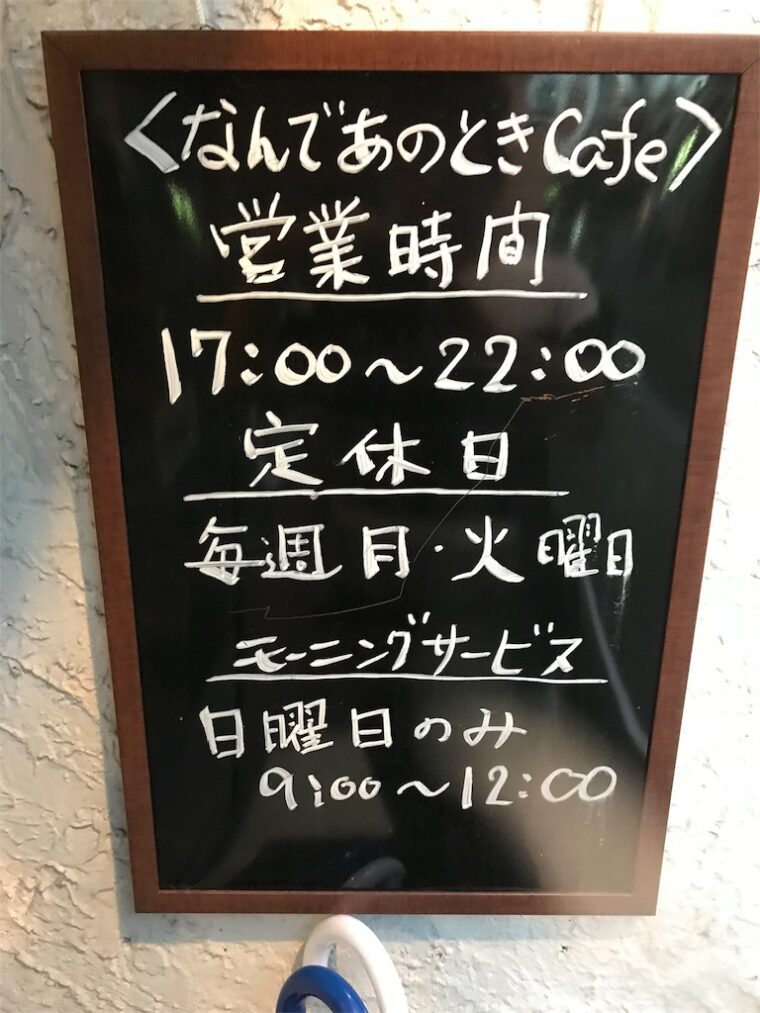 〈なんであのときCafe〉
営業時間
17:00〜22:00
定休日
毎週月・火曜日
モーニングサービス
日曜日のみ
9:00〜12:00